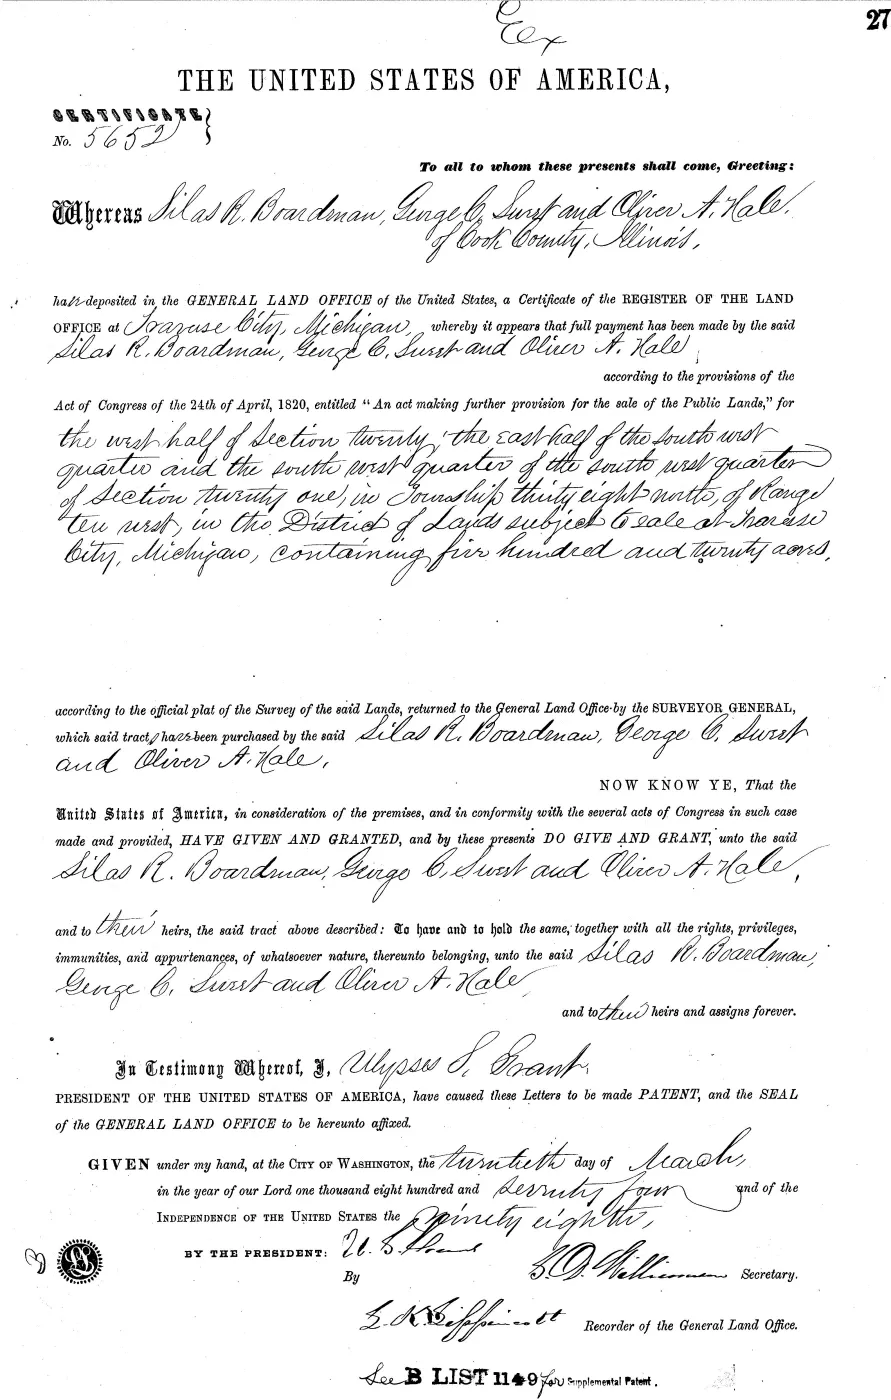 Ex
27
THE UNITED STATES OF AMERICA,
CERTIFICATE
No. 5652
To all to whom these presents shall come, Greeting:
Whereas Silas R. Boardman, George C. Swest and Oliver A. Hale,
of Cook County, Illinois,
have deposited in the GENERAL LAND OFFICE of the United States, a Certificate of the REGISTER OF THE LAND
OFFICE at Traverse City, Michigan, whereby it appears that full payment has been made by the said
Silas R. Boardman, George C. Swest and Oliver A. Hale,
according to the provisions of the
Act of Congress of the 24th of April, 1820, entitled "An act making further provision for the sale of the Public Lands," for
the west half of Section twenty; the east half of the south west
quarter and the south west quarter of the south west quarter
of Section twenty one, in Township thirty eight north, of Range
ten west, in the District of Lands subject to sale at Traverse
City, Michigan, containing five hundred and twenty acres,
according to the official plat of the Survey of the said Lands, returned to the General Land Office by the SURVEYOR GENERAL,
which said tract have been purchased by the said Silas R. Boardman, George C. Swest
and Oliver A. Hale,
NOW KNOW YE, That the
United States of America, in consideration of the premises, and in conformity with the several acts of Congress in such case
made and provided, HAVE GIVEN AND GRANTED, and by these presents DO GIVE AND GRANT, unto the said
Silas R. Boardman, George C. Swest and Oliver A. Hale,
and to their heirs, the said tract above described: To have and to hold the same, together with all the rights, privileges,
immunities, and appurtenances, of whatsoever nature, thereunto belonging, unto the said Silas R. Boardman,
George C. Swest and Oliver A. Hale,
and to their heirs and assigns forever.
In Testimony Whereof, I, Ulysses S. Grant,
PRESIDENT OF THE UNITED STATES OF AMERICA, have caused these Letters to be made PATENT, and the SEAL
of the GENERAL LAND OFFICE to be hereunto affixed.
GIVEN under my hand, at the CITY OF WASHINGTON, the twentieth day of March,
in the year of our Lord one thousand eight hundred and seventy four and of the
INDEPENDENCE OF THE UNITED STATES the ninety eighth,
BY THE PRESIDENT: U. S. Grant
By S. D. Williamson Secretary.
L. K. Lippincott Recorder of the General Land Office.
See B LIST 1149 for Supplemental Patent.